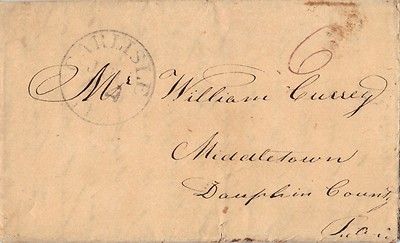 CARLISLE
4
6
Mr William Currey
Middletown
Dauphin County